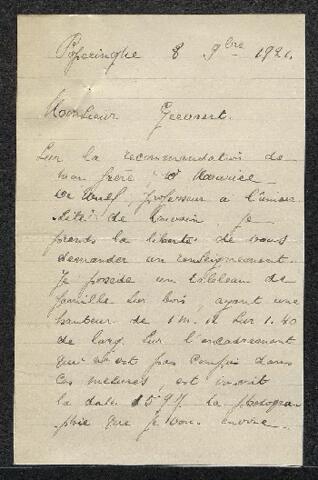 Poperinghe 8 9bre 1921.
Monsieur Geevaert.
Sur la recommandation de
mon frère Mr Maurice
De Wulf, professeur a l'univer
sité de Louvain je
prends la liberté de vous
demander un renseignement.
Je possède un tableau de
famille sur bois, ayant une
hauteur de 1 m. 11 sur 1.40
de larg. Sur l'encadrement
qui n'est pas compris dans
ces mesures, est inscrit
la date 1597 la photogra
phie que je vous envoie